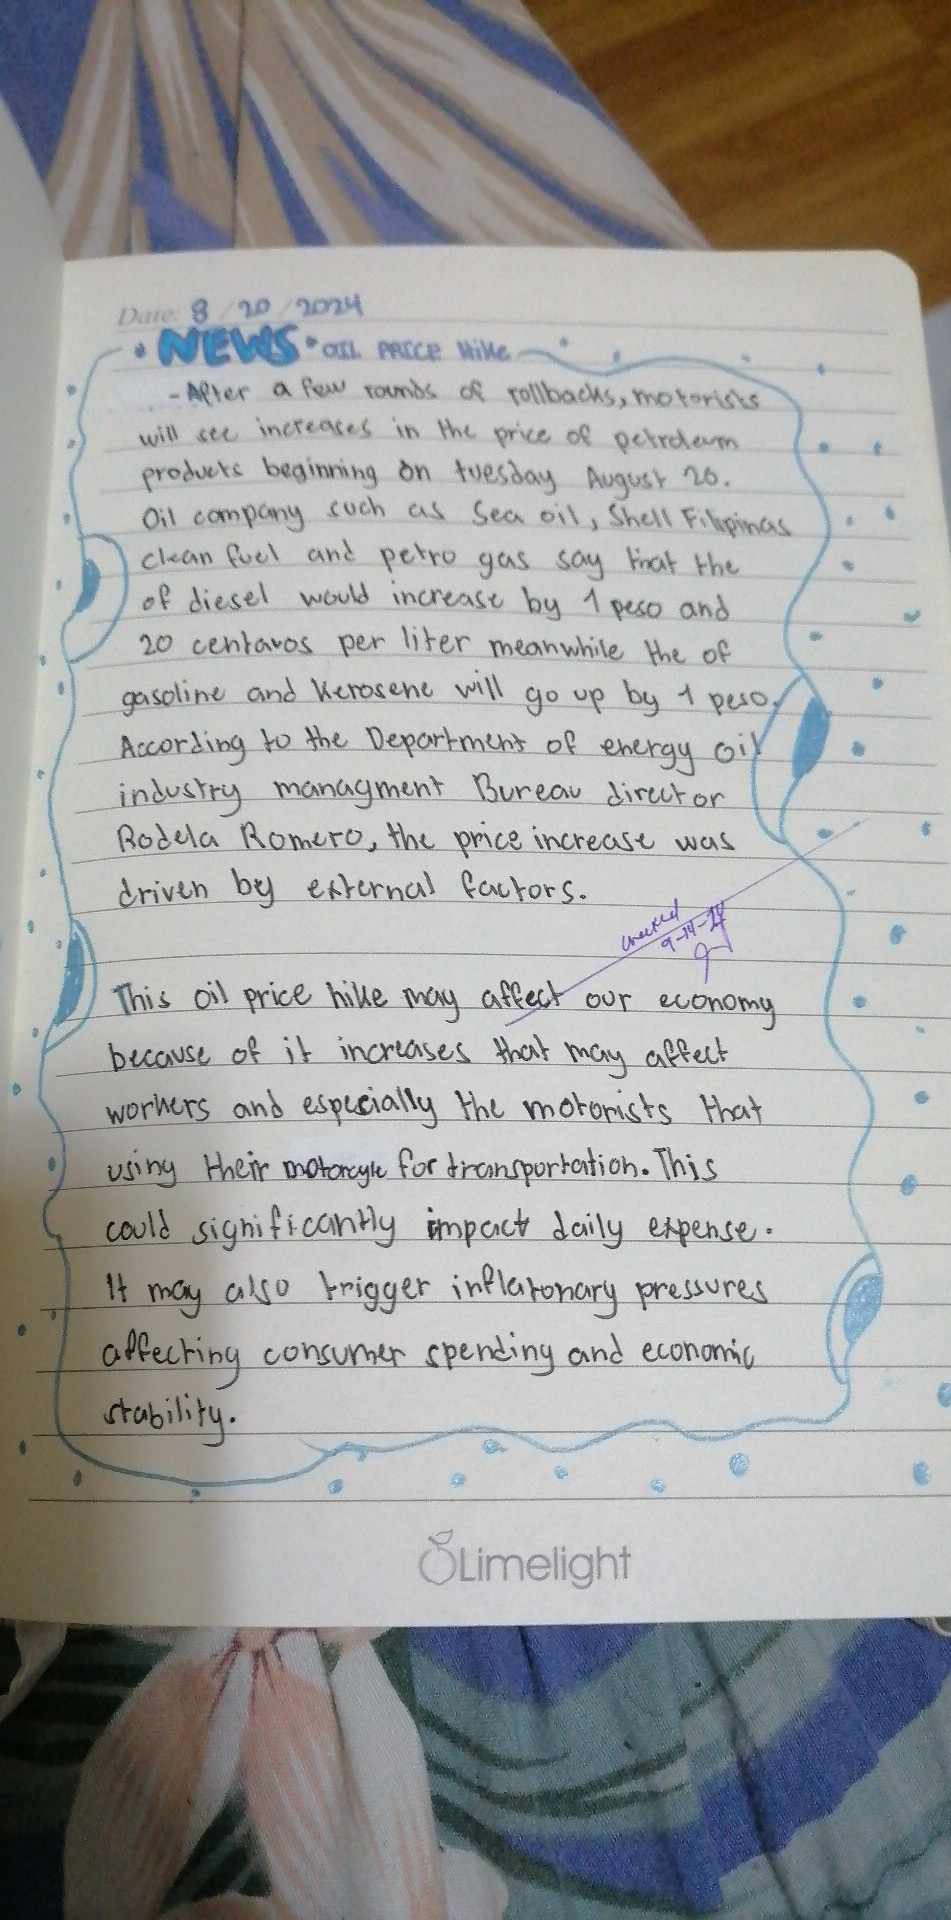 Date: 8/20/2024
NEWS • OIL PRICE Hike
- After a few rounds of rollbacks, motorists
will see increases in the price of petroleum
products beginning on tuesday August 20.
Oil company such as Sea oil, Shell Filipinas
clean fuel and petro gas say that the
of diesel would increase by 1 peso and
20 centavos per liter meanwhile the of
gasoline and Kerosene will go up by 1 peso.
According to the Department of energy oil
industry managment Bureau director
Rodela Romero, the price increase was
driven by external factors.
checked
9-14-24
This oil price hike may affect our economy
because of it increases that may affect
workers and especially the motorists that
using their motorcycle for transportation. This
could significantly impact daily expense.
It may also trigger inflationary pressures
affecting consumer spending and economic
stability.
Limelight